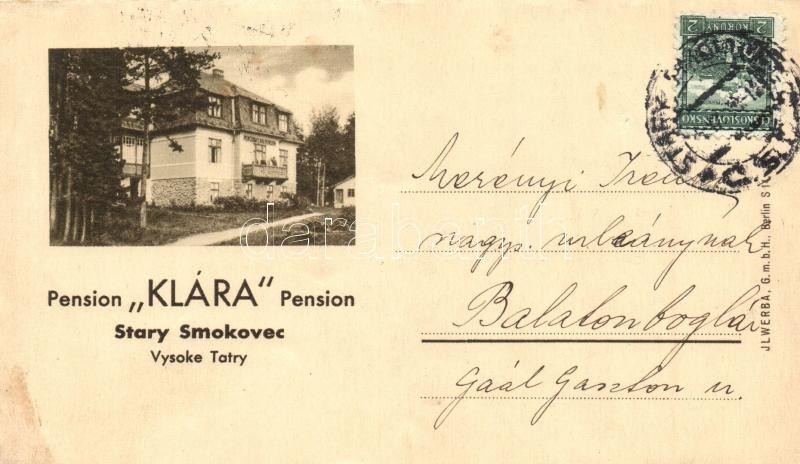 Pension „KLÁRA“ Pension
Stary Smokovec
Vysoke Tatry
Merényi Irén
nagys. urleánynak
Balatonboglár
Gaál Gaszton u.
2 KORUNY 2
ČESKOSLOVENSKO
JLWERBA, G.m.b.H., Berlin S
darabanth